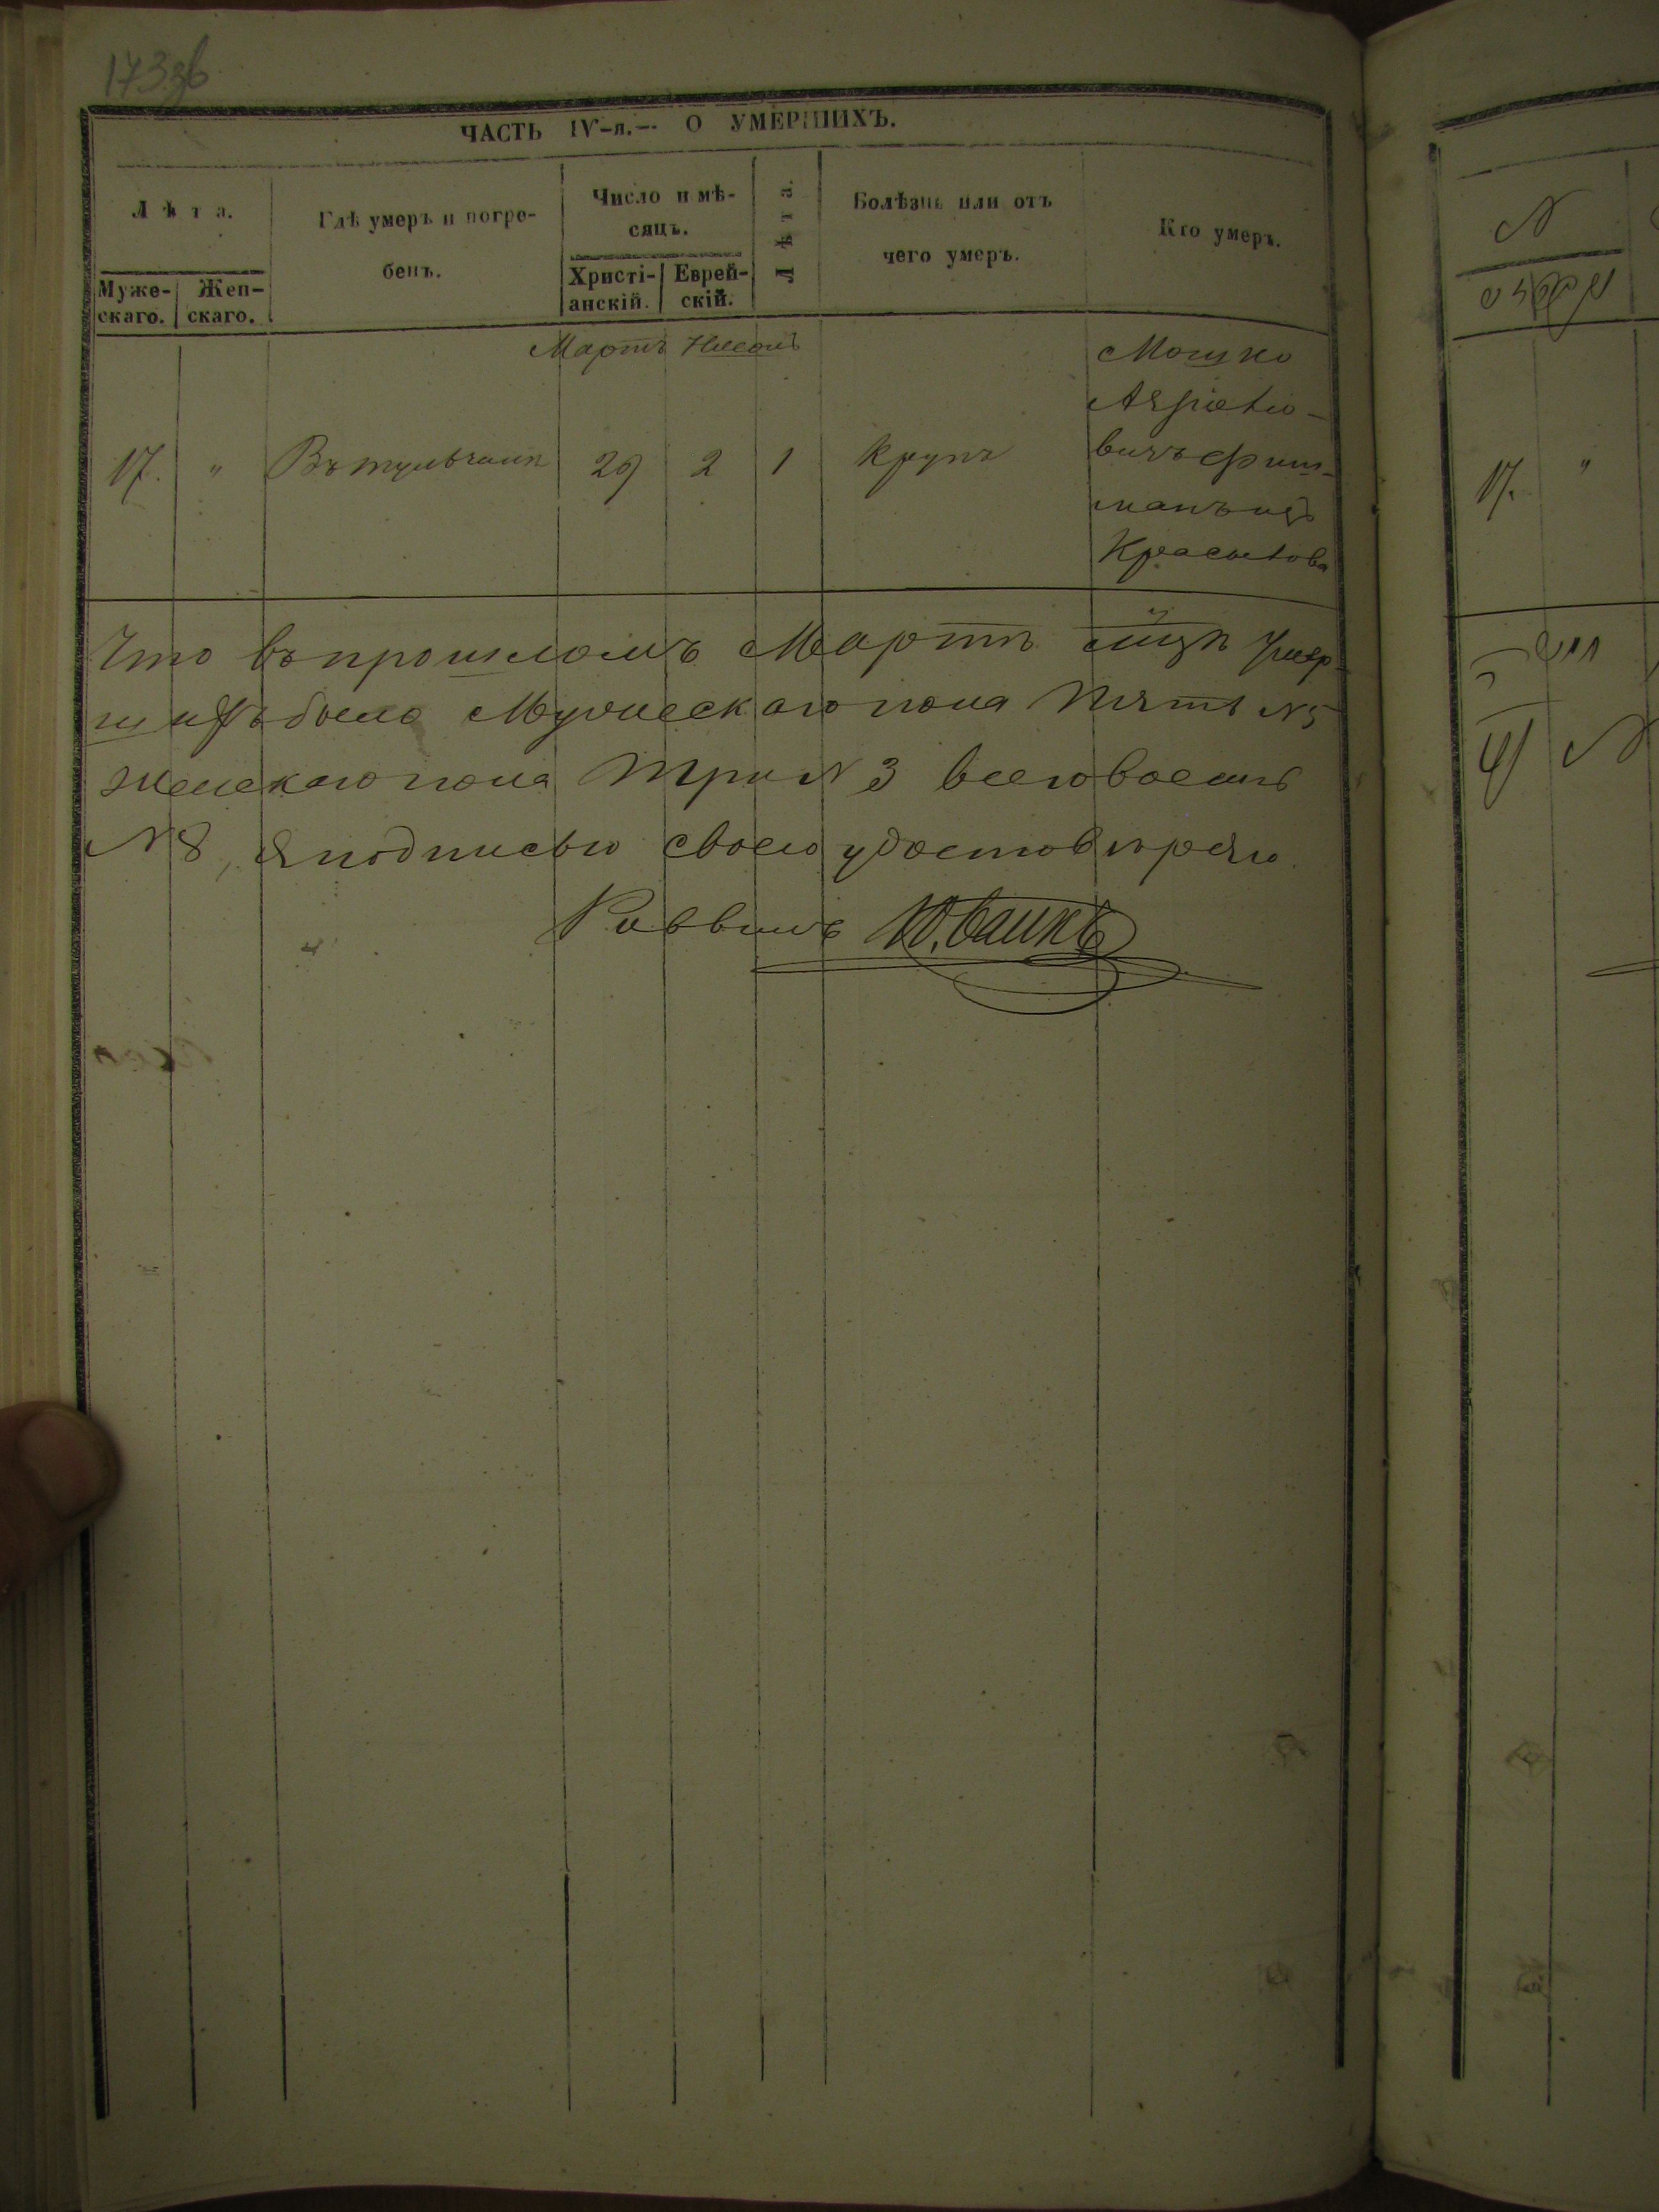 173 об
ЧАСТЬ IV-я.— О УМЕРШИХЪ.
Лѣта.
Муже-
скаго.
Жен-
скаго.
Гдѣ умеръ и погре-
бенъ.
Число и мѣ-
сяцъ.
Христі-
анскій.
Еврей-
скій.
Лѣта.
Болѣзнь или отъ
чего умеръ.
Кто умеръ.
Мартъ Нисонъ
17. " Въ Тульчинѣ 29 2 1 крупъ
Мошко
вичъ Фиш-
манъ изъ
Что въ прошломъ Мартѣ мцѣ Умер-
шихъ было Мужескаго пола Пять N 5
Женскаго пола Три N 3 всего восемь
N 8, Я подписью своею удостовѣряю
Раввинъ
N
17. "